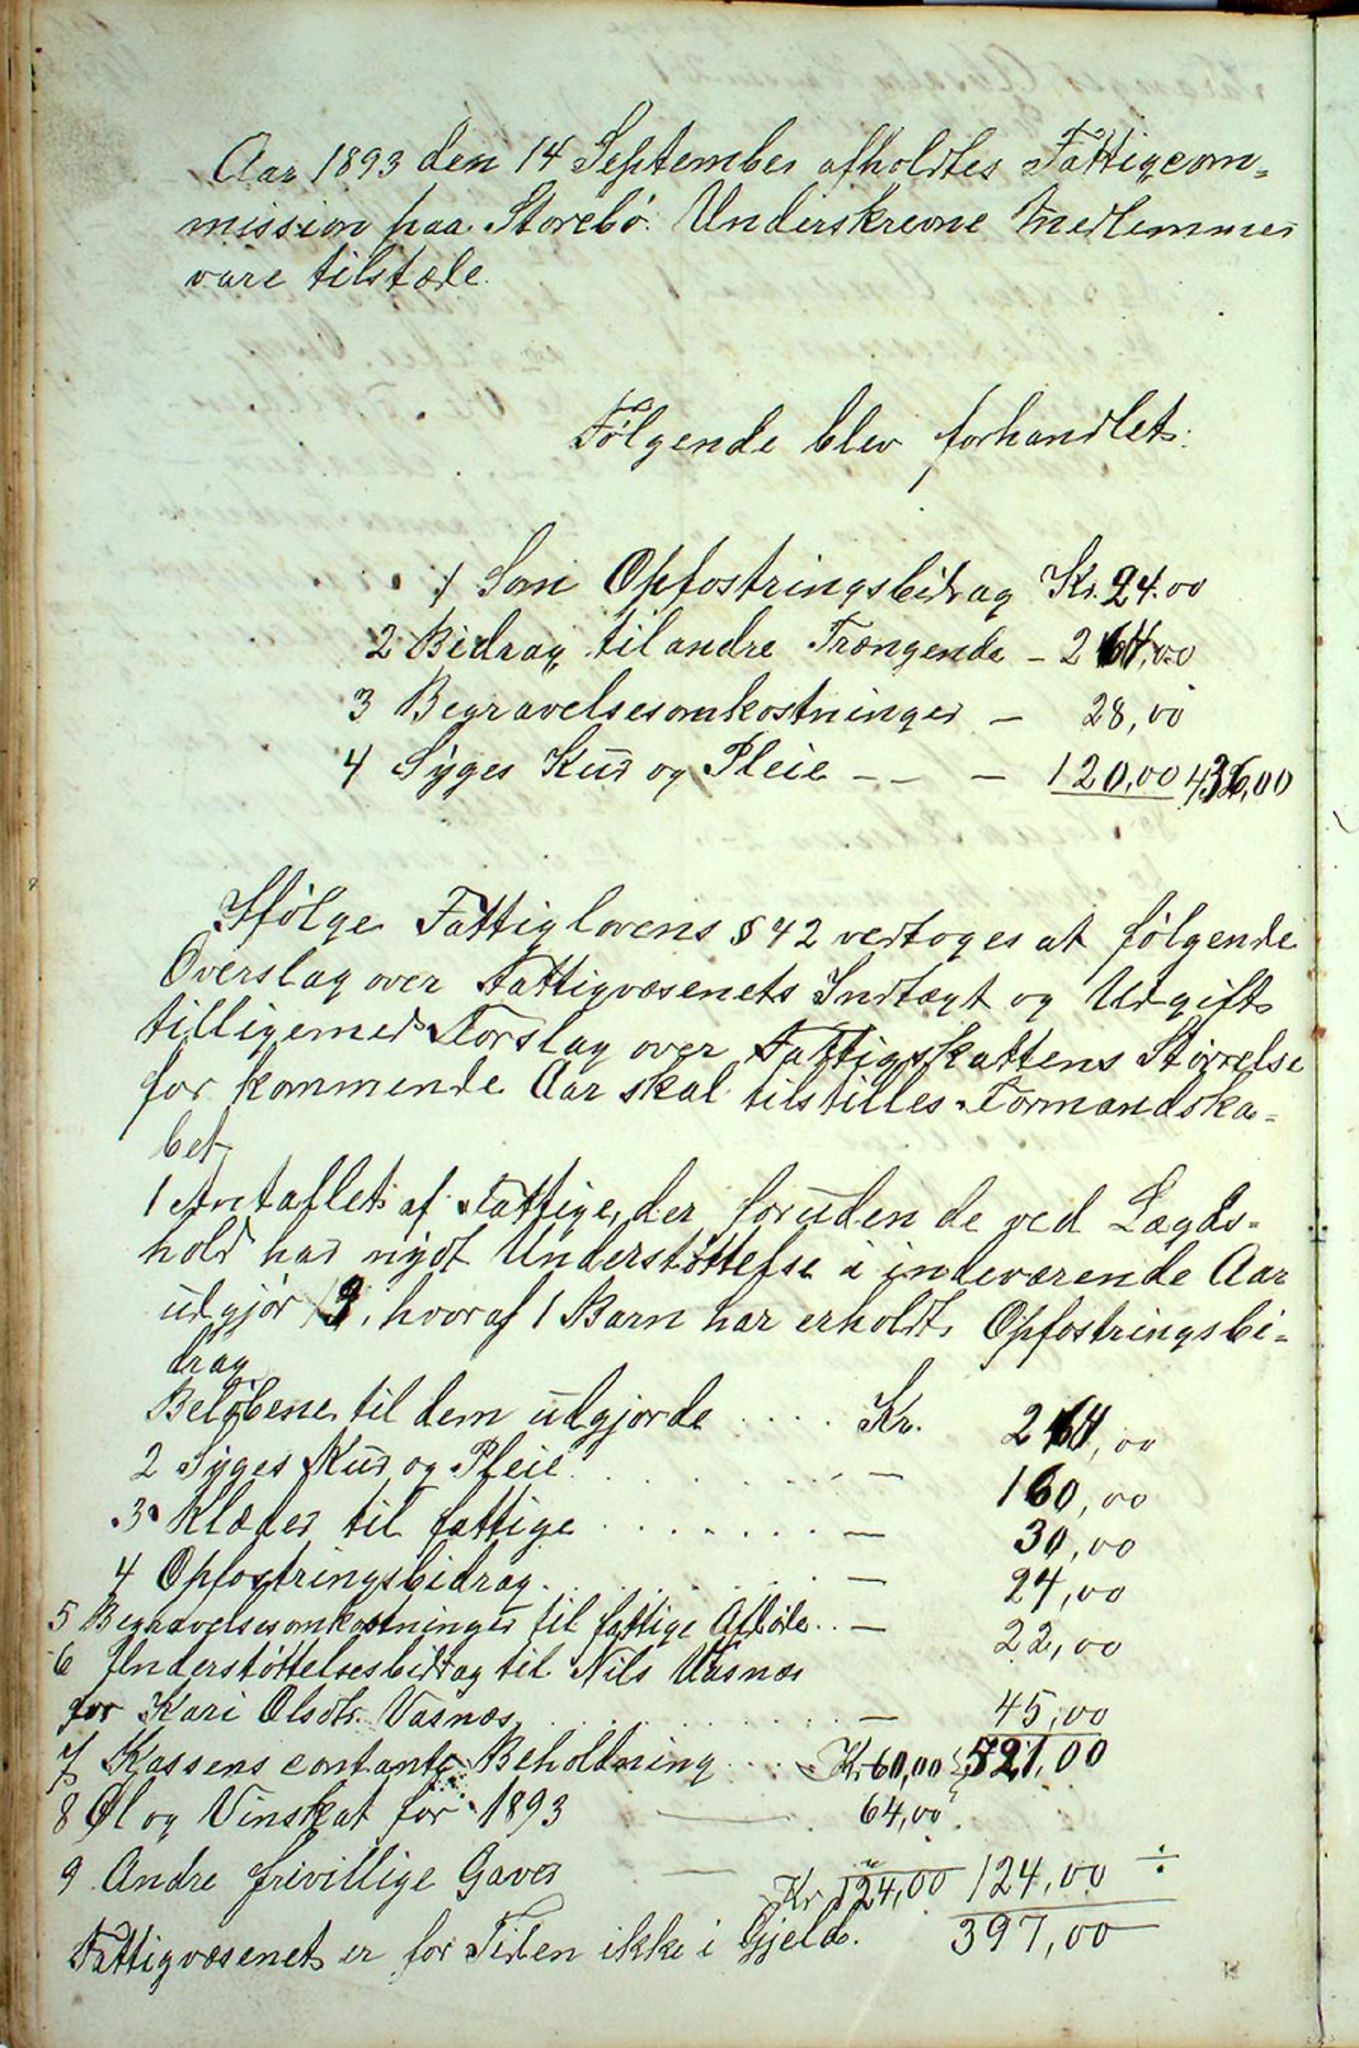 Aar 1893 den 14 September afholdtes Fattigcom-
mission paa Storebö. Underskrevne Medlemmer
vare tilstede.
Følgende blev forhandlet:
1 Som Opfostringsbidrag Kr. 24.00
2 Bidrag til andre Trængende – 264,00
3 Begravelsesomkostninger – 28,00
4 Syges Kur og Pleie – – – 120,00 436,00
Ifølge Fattiglovens § 42 vedtoges at følgende
Overslag over Fattigvæsenets Indtægt og Udgift
tilligemed Forslag over Fattigskattens Størrelse
for kommende Aar skal tilstilles Formandska-
bet
1 Antallet af Fattige, der foruden de ved Lægds-
hold har nydt Understøttelse i indeværende Aar
udgjør 19, hvoraf 1 Barn har erholdt Opfostringsbi-
drag
Beløbene til dem udgjorde .... Kr. 264,00
2 Syges Kur og Pleie ........ – 160,00
3 Klæder til fattige ........ – 30,00
4 Opfostringsbidrag ........ – 24,00
5 Begravelsesomkostninger til fattige Afdøde .. – 22,00
6 Understøttelsesbidrag til Nils Vasnæs
for Kari Olsdtr. Vasnæs ........ – 45,00
7 Kassens contante Beholdning .... Kr 60,00 521,00
8 Øl og Vinskat for 1893 — 64,00
9 Andre frivillige Gaver — " 
Kr 124,00 124,00 ÷
Fattigvæsenet er for Tiden ikke i Gjeld. 397,00